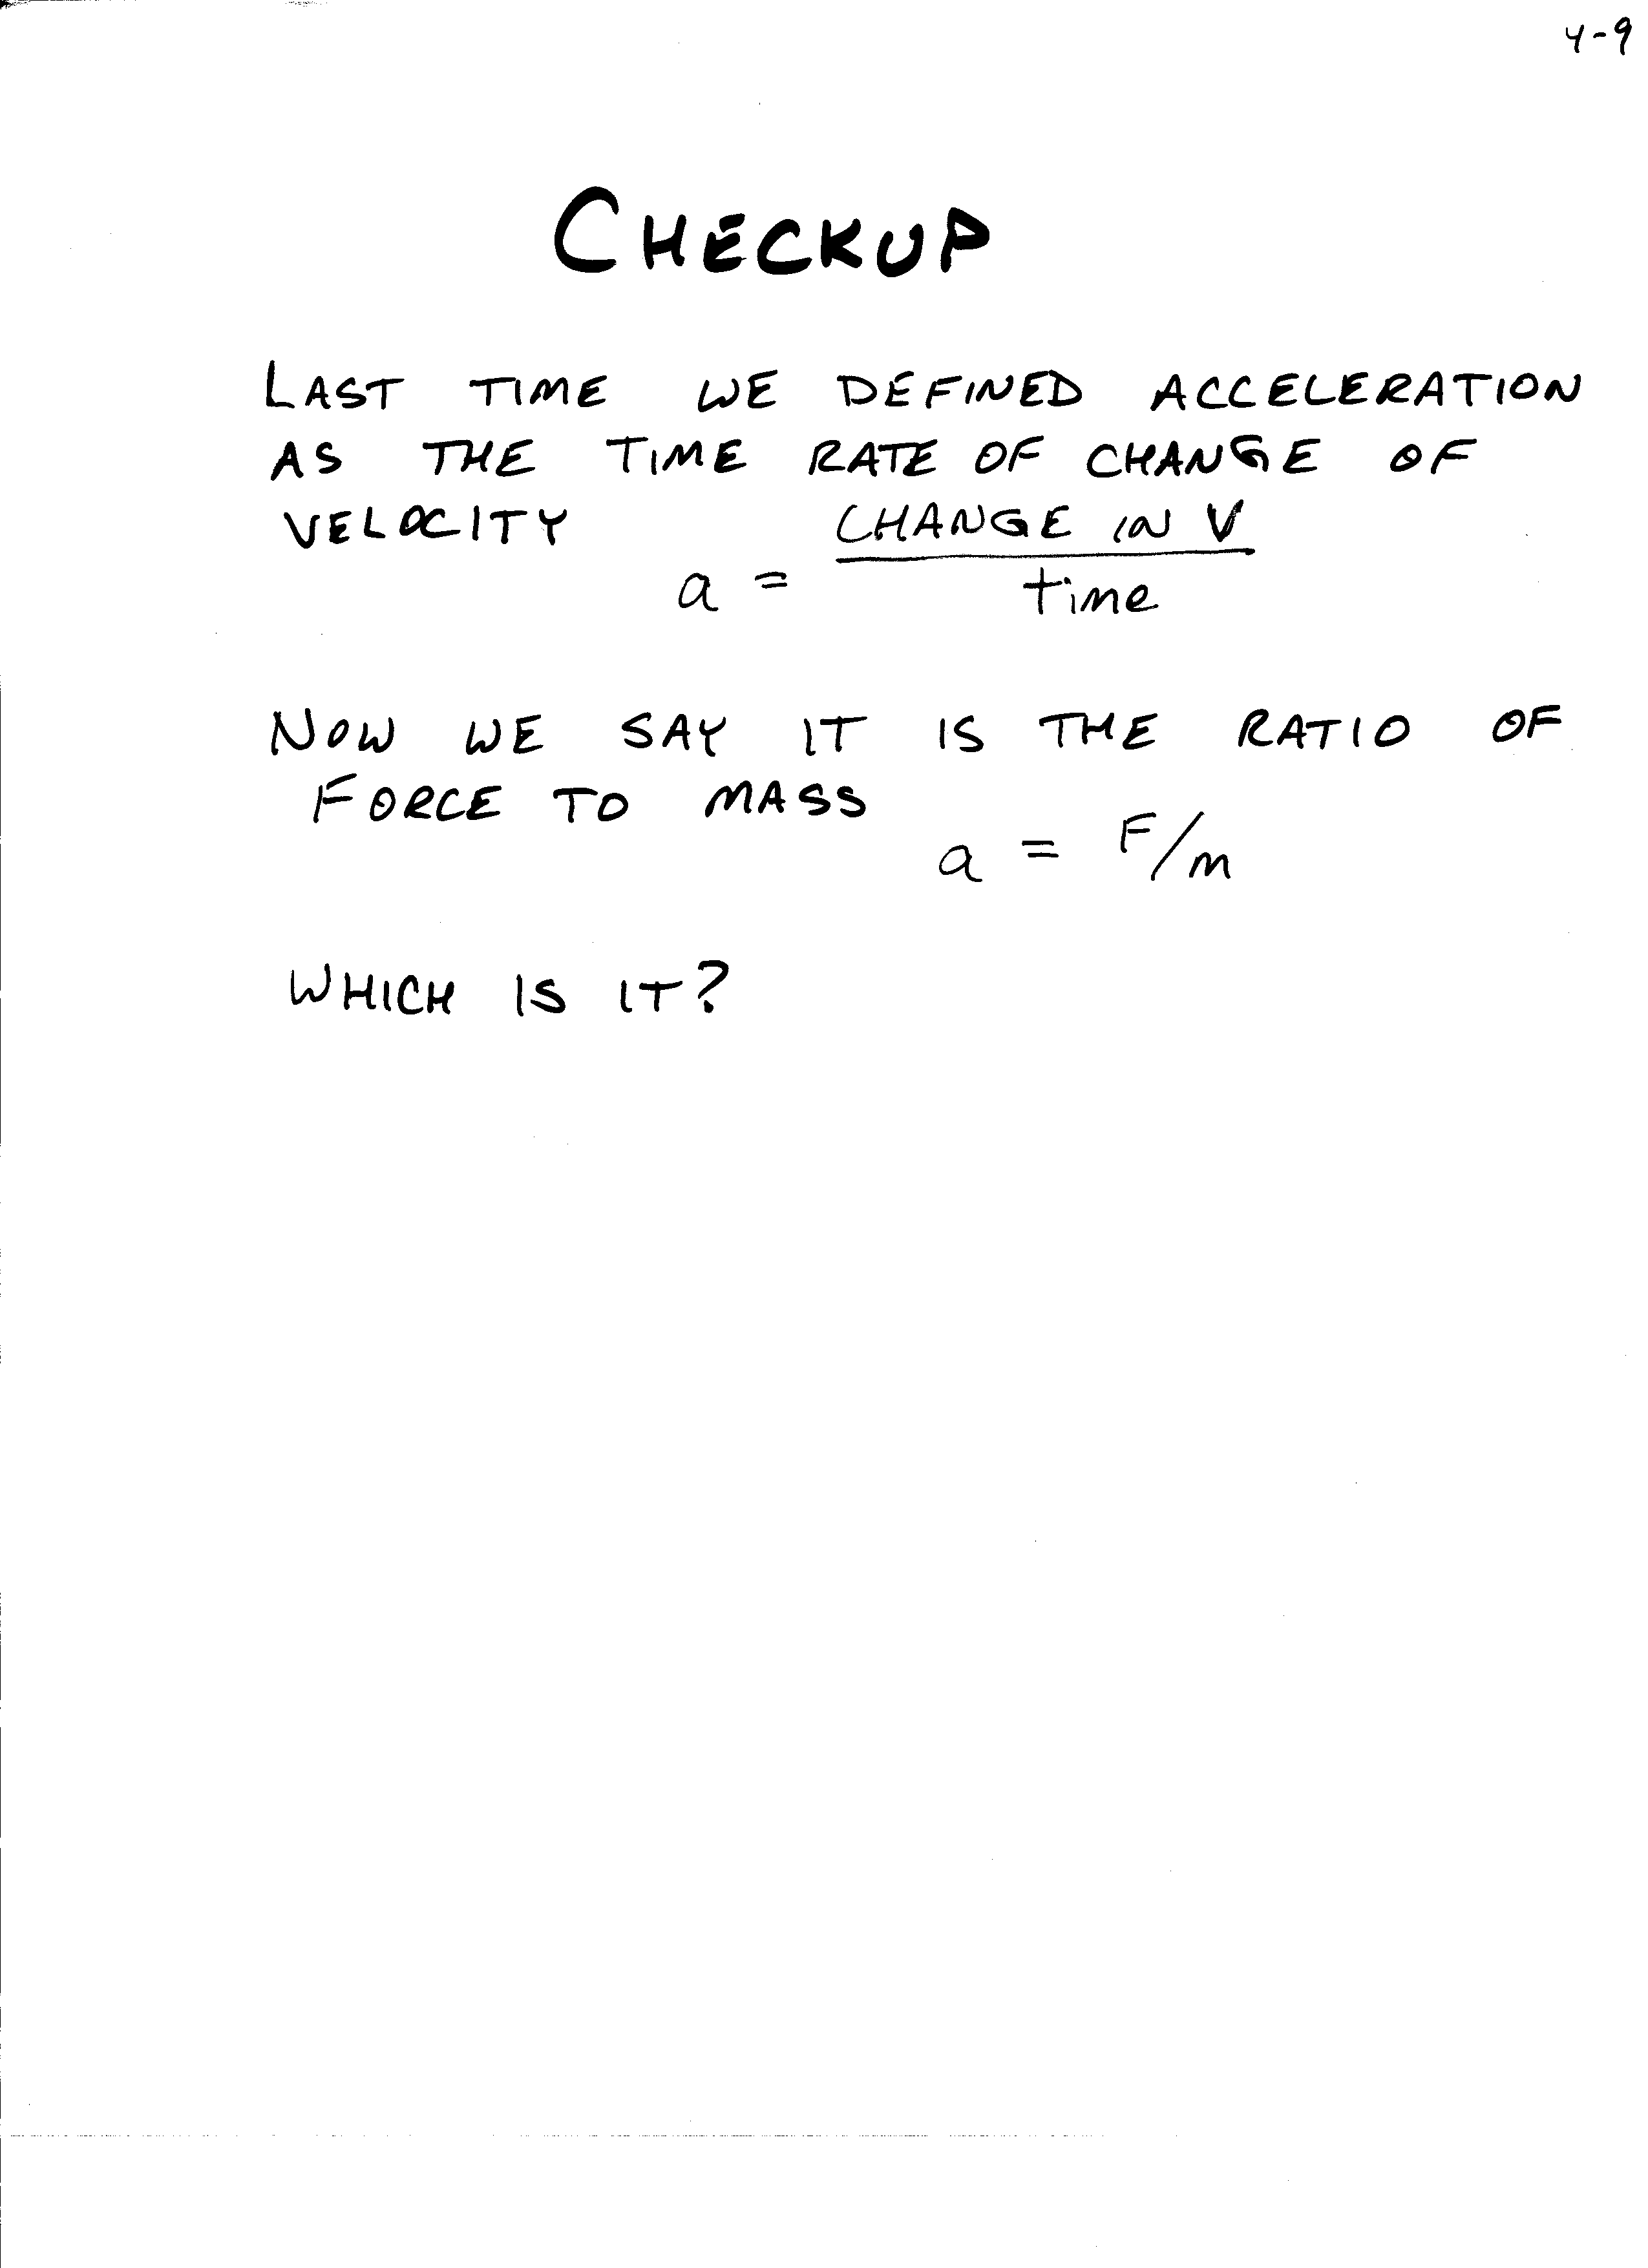 4-9
CHECKUP
LAST TIME WE DEFINED ACCELERATION
AS THE TIME RATE OF CHANGE OF
VELOCITY CHANGE IN V
a = time
NOW WE SAY IT IS THE RATIO OF
FORCE TO MASS
a = F/m
WHICH IS IT?